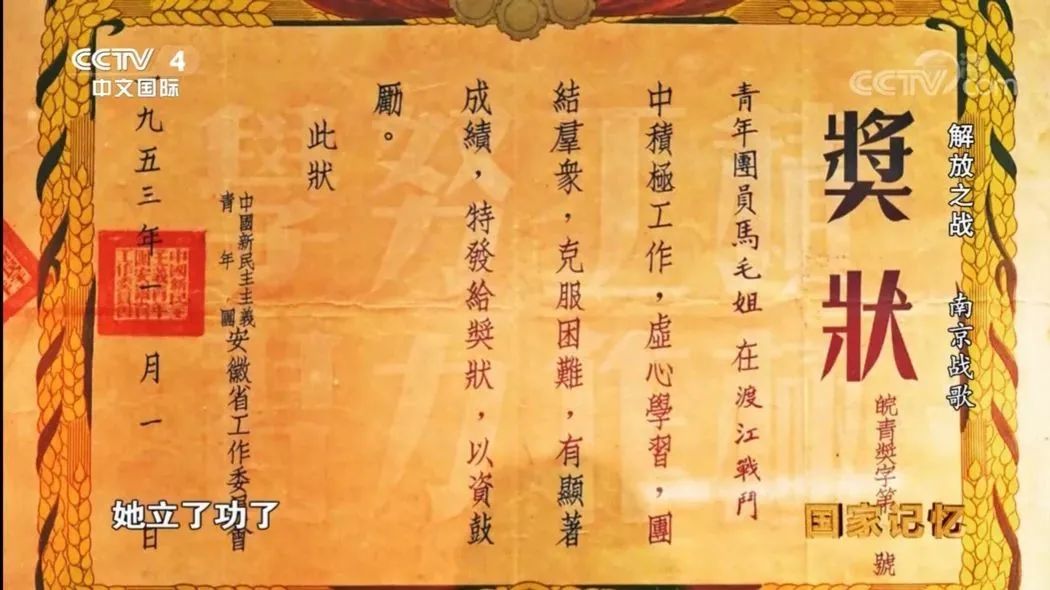 獎狀
皖青獎字第 號
青年團員馬毛姐 在渡江戰鬥
中積極工作，虛心學習，團
結羣衆，克服困難，有顯著
成績，特發給獎狀，以資鼓
勵。
此狀
中國新民主主義
青年團
安徽省工作委員會
一九五三年一月一日
CCTV 4
中文国际
CCTV.com
解放之战 南京战歌
她立了功了
国家记忆